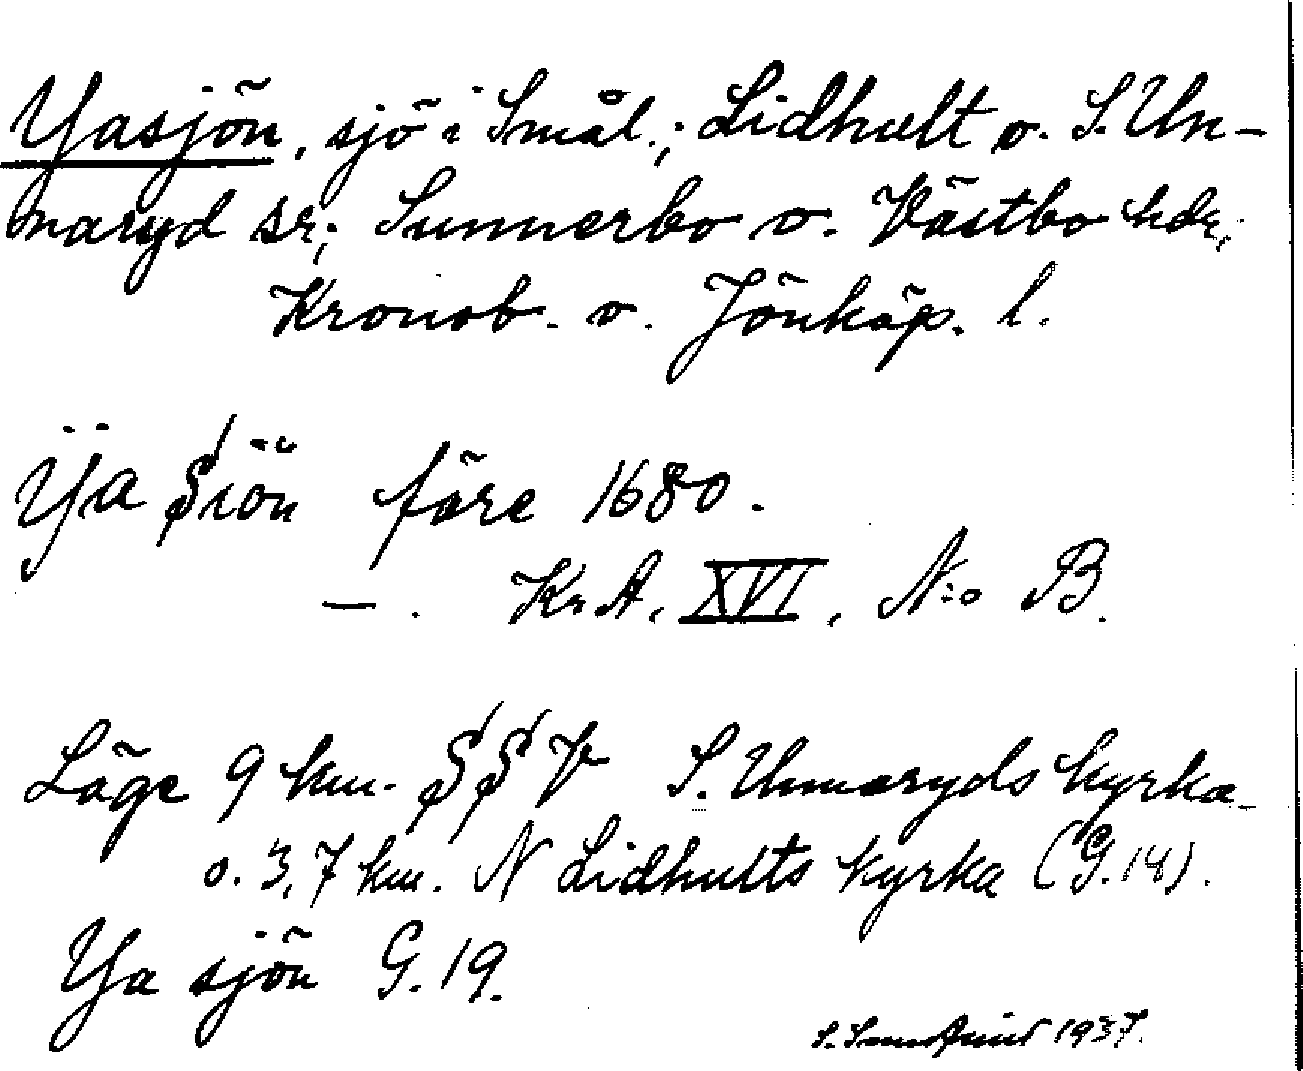 Yasjön, sjö i Smål.; Lidhult o. S. Un-
naryd sr; Sunnerbo o. Västbo hdr,
Kronob. o. Jönköp. l.
Ÿa Siön före 1680.
— . Kr.A. XVI, N:o B.
Läge 9 km. SSV S. Unnaryds kyrka
o. 3,7 km. N Lidhults kyrka (G.14).
Ya sjön G.19.
S. 1937.